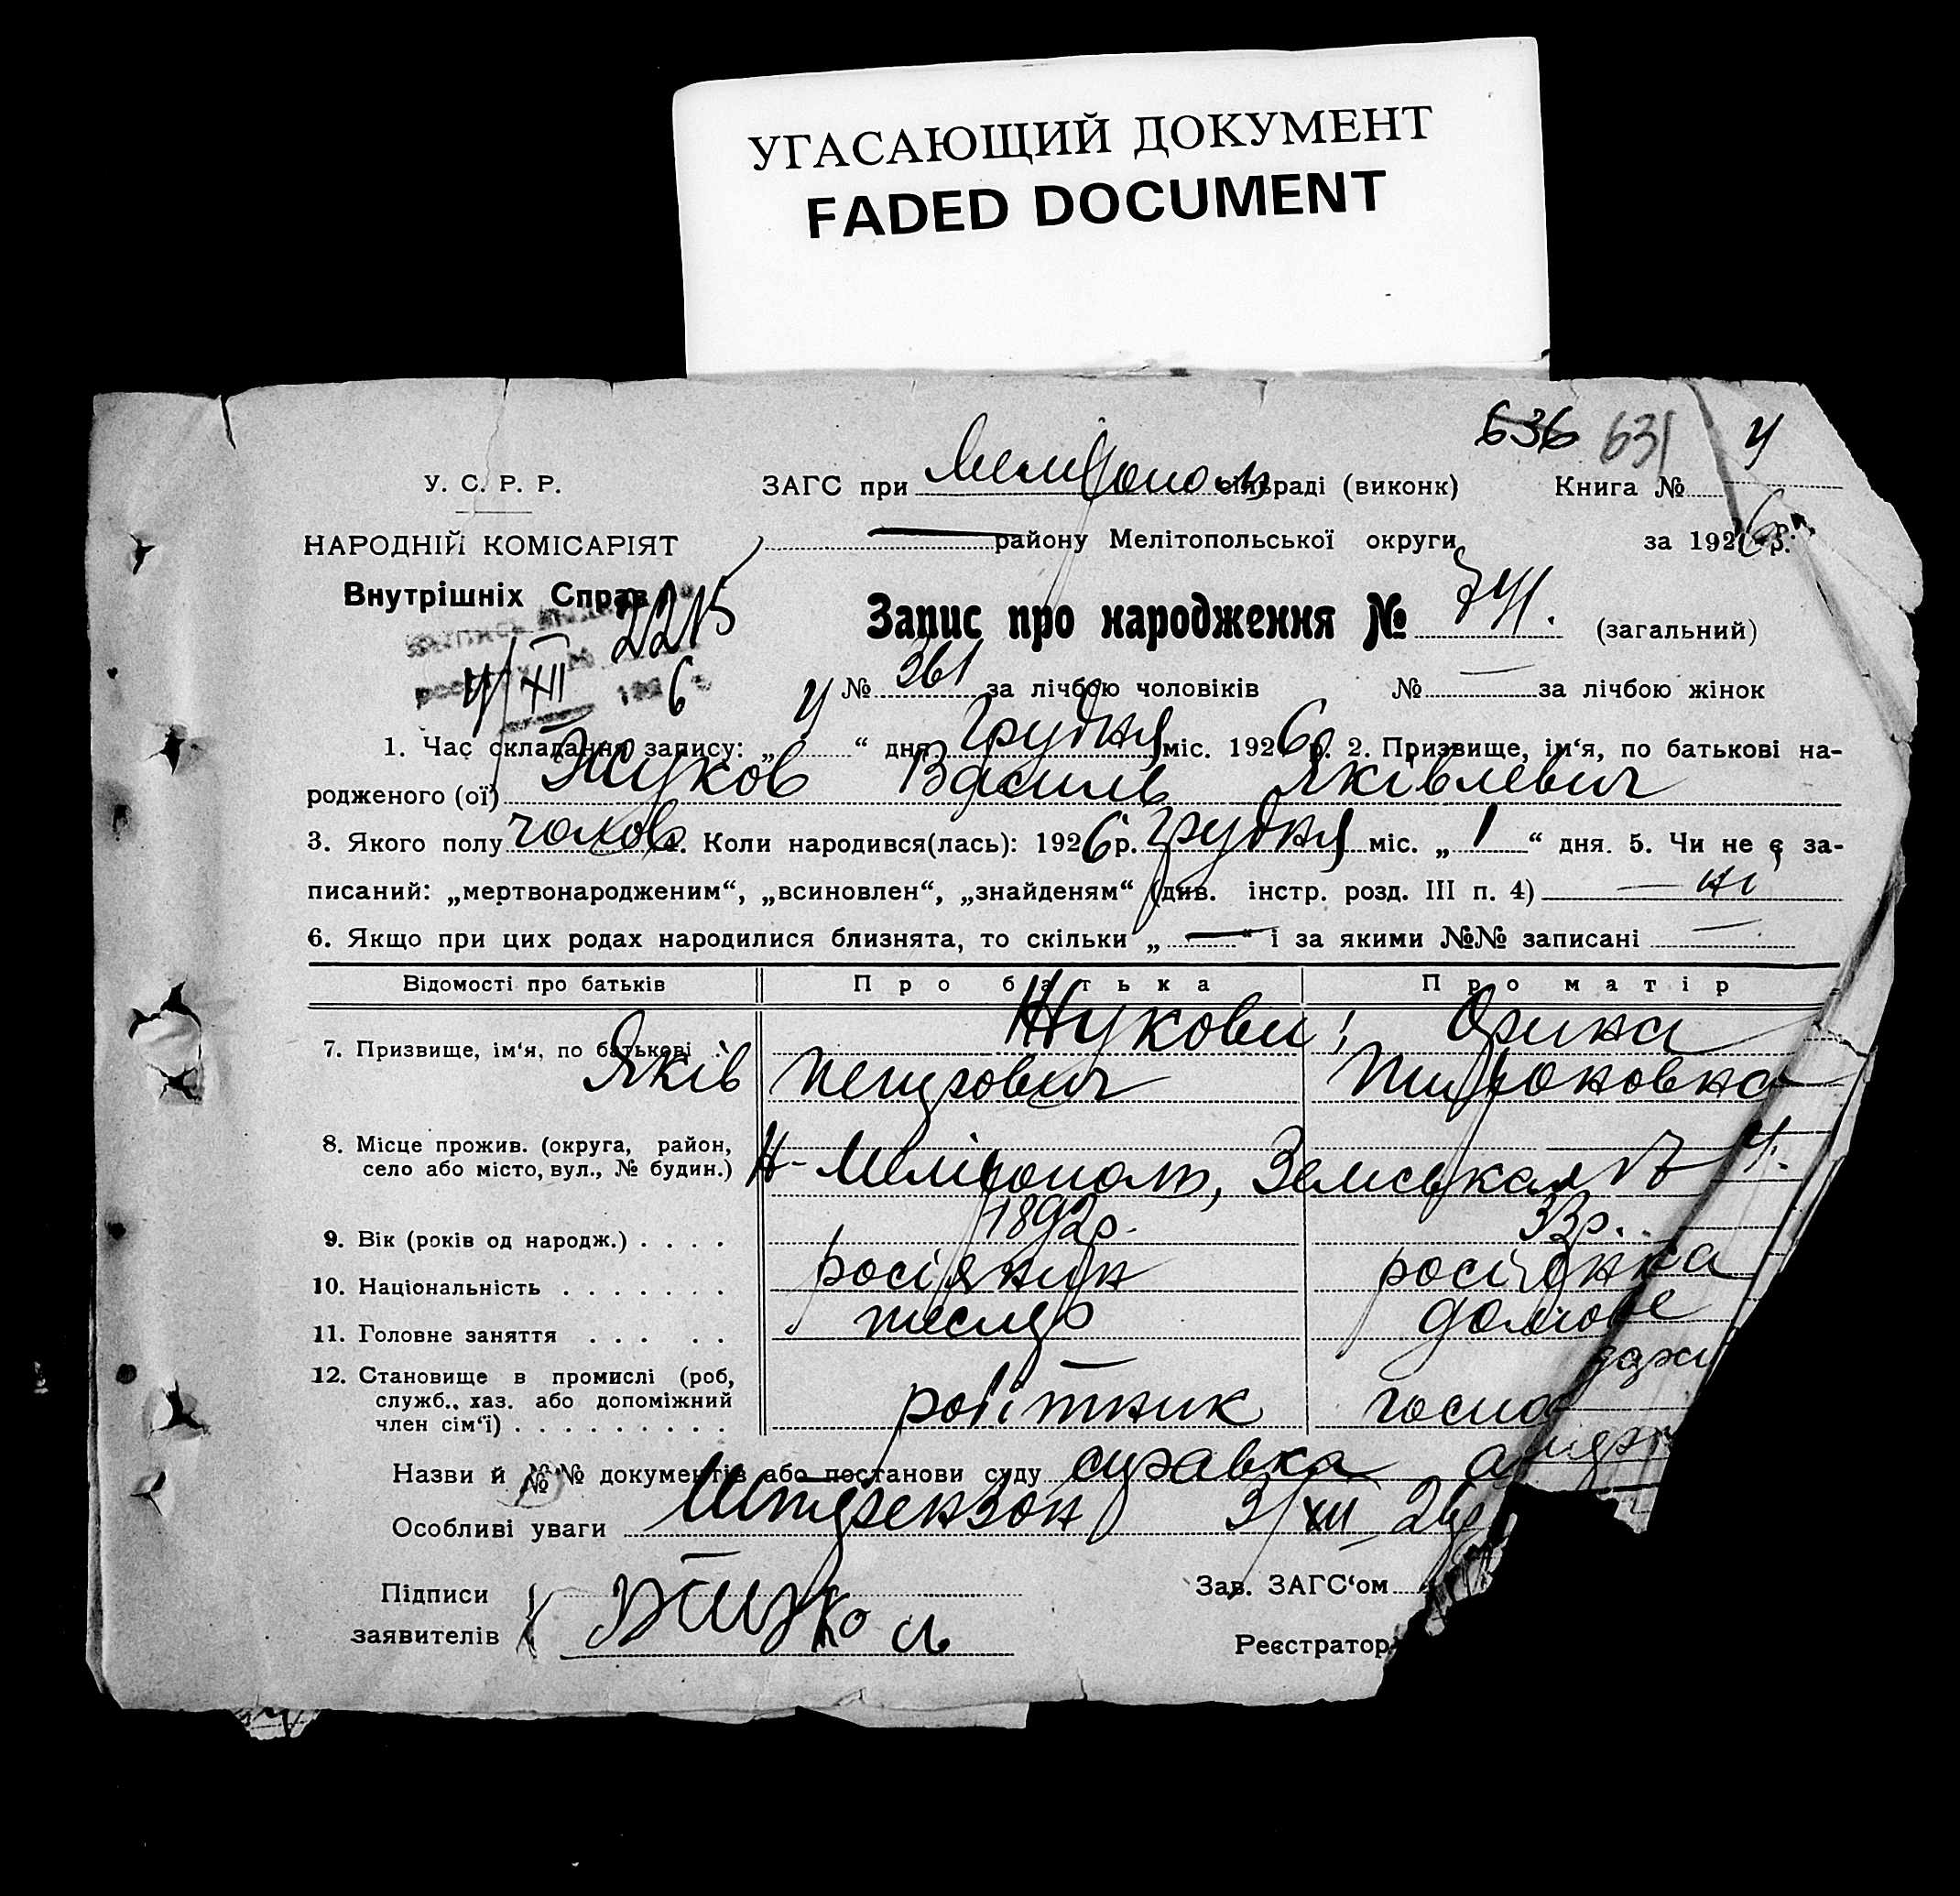 УГАСАЮЩИЙ ДОКУМЕНТ
FADED DOCUMENT
636 631 4
У. С. Р. Р.
ЗАГС при Мелітополь сільраді (виконк) Книга №
НАРОДНІЙ КОМІСАРІЯТ
району Мелітопольської округи за 1926 р.
Внутрішніх Справ
2215
Запис про народження № 741. (загальний)
4/XII 1926
№ 361 за лічбою чоловіків № — за лічбою жінок
1. Час складання запису: „ 4 “ дня грудня міс. 1926 р. 2. Призвище, ім‘я, по батькові на-
родженого (ої) Жуков Василь Яківлевич
3. Якого полу чолов 4. Коли народився(лась): 1926 р. грудня міс. „ 1 “ дня. 5. Чи не є за-
писаний: „мертвонародженим“, „всиновлен“, „знайденям“ (див. інстр. розд. III п. 4) — ні
6. Якщо при цих родах народилися близнята, то скільки „ — “ і за якими №№ записані —
Відомості про батьків Про батька Про матір
7. Призвище, ім‘я, по батькові Жукови; Орина
Яків Петрович
8. Місце прожив. (округа, район,
село або місто, вул., № будин.) Мелітополь, Земська № 4.
9. Вік (років од народж.) . . . . 1892 р. 33 р.
10. Національність . . . . . . . росіянин росіянка
11. Головне заняття . . . . . тесляр домове
12. Становище в промислі (роб,
служб., хаз. або допоміжний
член сім‘ї) . . . . . . . . . робітник
Назви й №№ документів або постанови суду справка
Особливі уваги Штерензон 3/XII 26
Підписи
заявителів
Зав. ЗАГС‘ом
Реєстратор